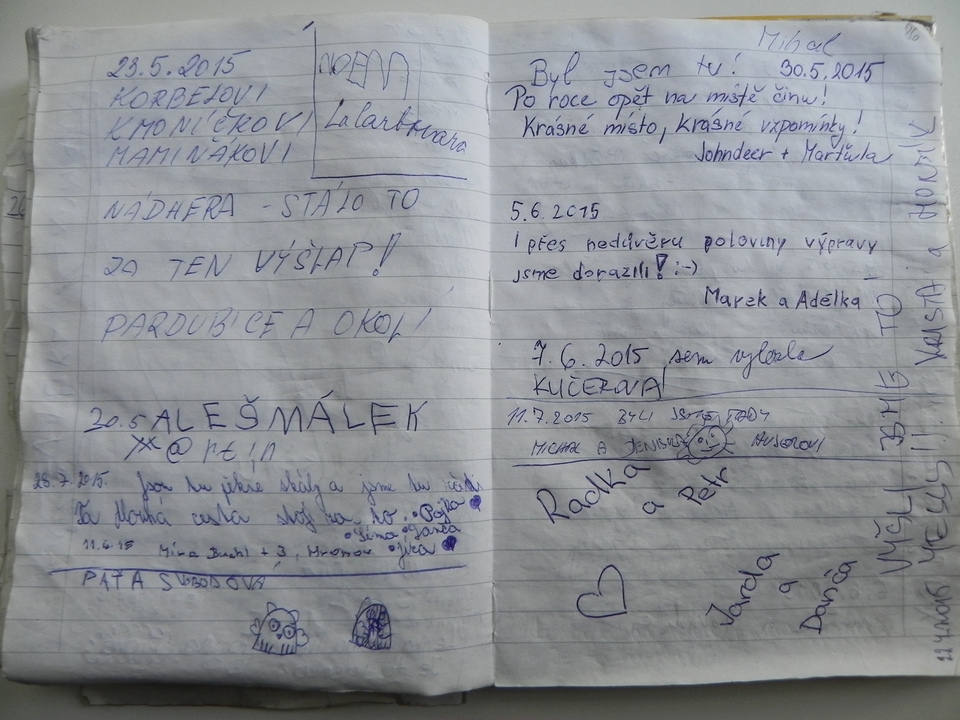 23.5.2015
KORBELOVI
KMONÍČKOVI
MAMIŇÁKOVI
NÁDHERA - STÁLO TO
ZA TEN VÝŠLAP!
PARDUBICE A OKOLÍ
20.5 ALEŠ MÁLEK
M@rtin
28.7.2015. jsou tu pěkné skály a jsme tu
Ta dlouhá cesta stojí za to. Pájka
Sima Janča
11.6.15 Míra + 3, Hronov
PÁŤA SVOBODOVÁ
Michal
Byl jsem tu! 30.5.2015
Po roce opět na místě činu!
Krásné místo, krásné vzpomínky!
Johndeer + Marťula
5.6.2015
I přes nedůvěru poloviny výpravy
jsme dorazili! :-)
Marek a Adélka
7.6.2015 sem vylezla
KUČEROVA
11.7.2015 BYLI JSME TADY
MICHAL A
Radka
a Petr
Jarda
a
Danča
VYŠLI JSME TO!
YESS!!
11.7.2015